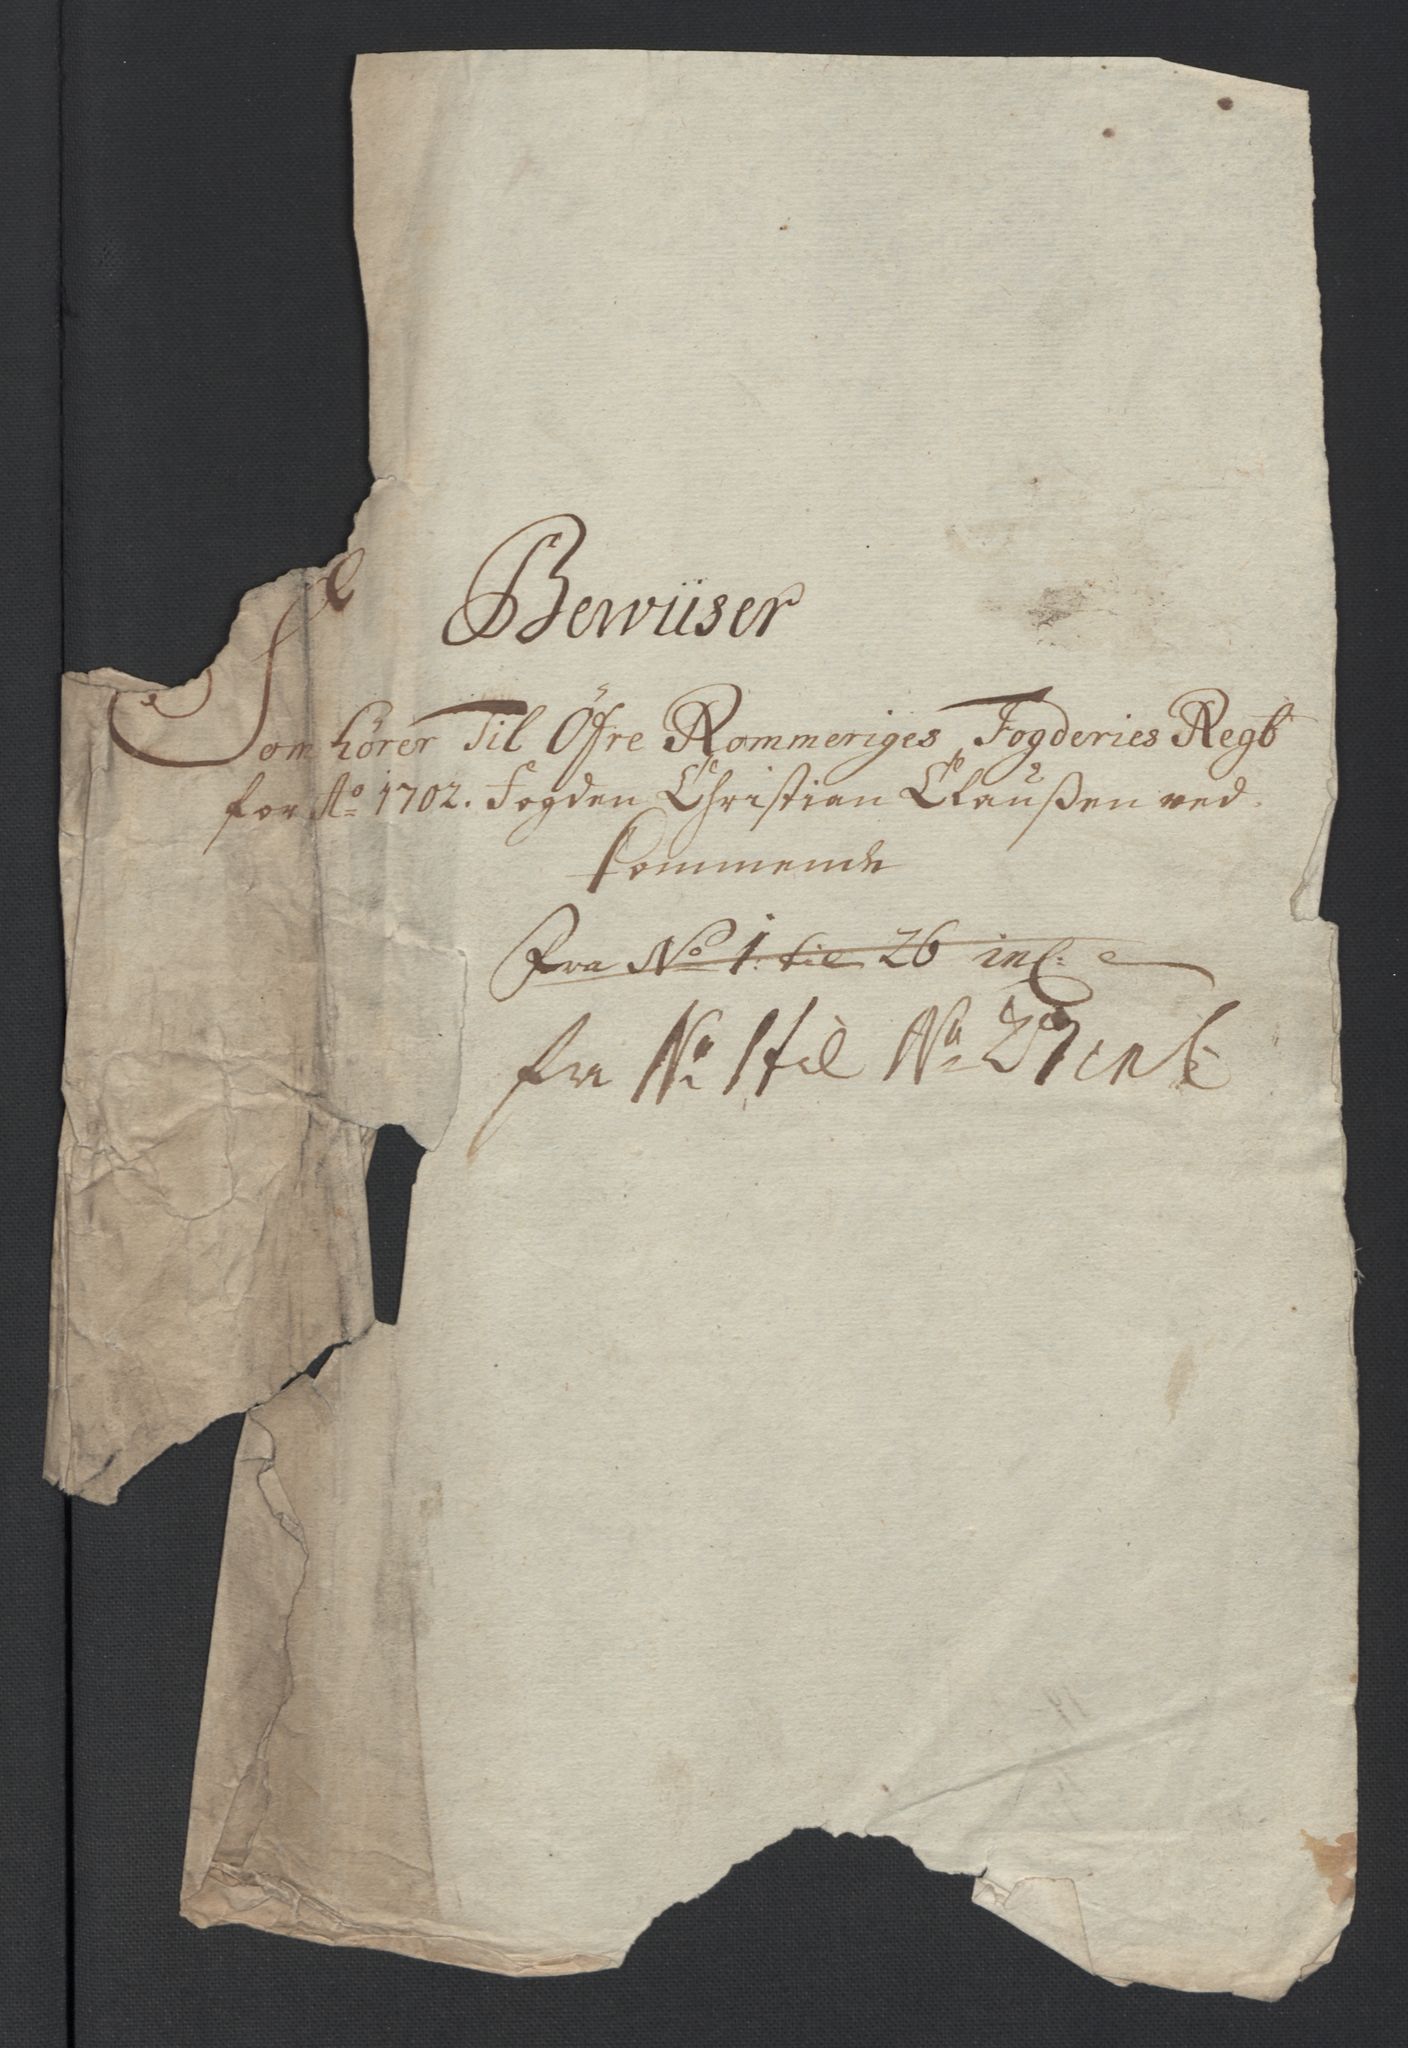 Bewiiser
Som hörer Til Öfre Rommeriges Fogderies Regb
for Ao 1702. Fogden Christian Claußen ved
kommende
Fra No 1. til 26 incl:
fra No 1 til No 27 incl